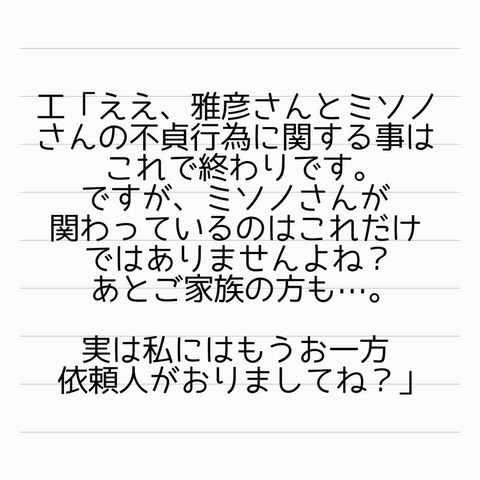 工「ええ、雅彦さんとミソノ
さんの不貞行為に関する事は
これで終わりです。
ですが、ミソノさんが
関わっているのはこれだけ
ではありませんよね？
あとご家族の方も…。
実は私にはもうお一方
依頼人がおりましてね？」